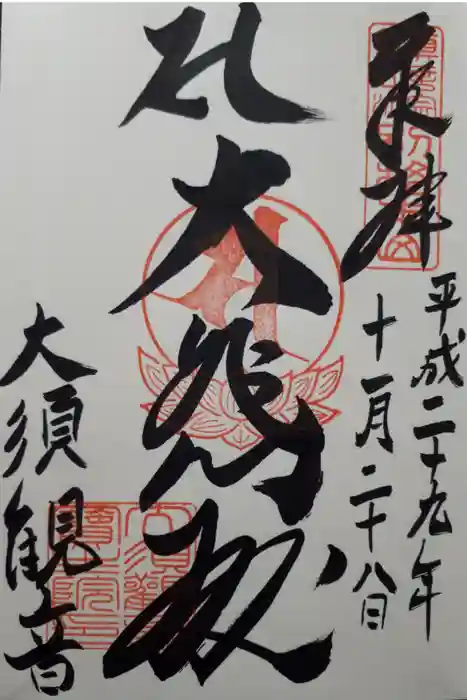 奉拝
平成二十九年
十一月二十八日
大悲殿
大須観音